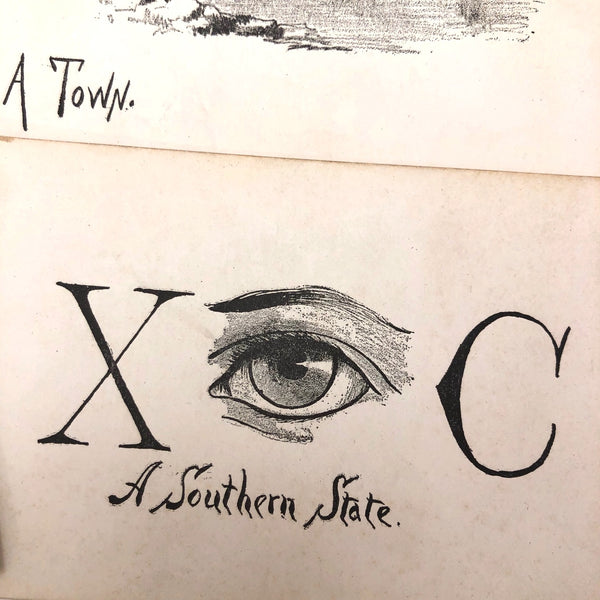 A Town.
X C
A Southern State.